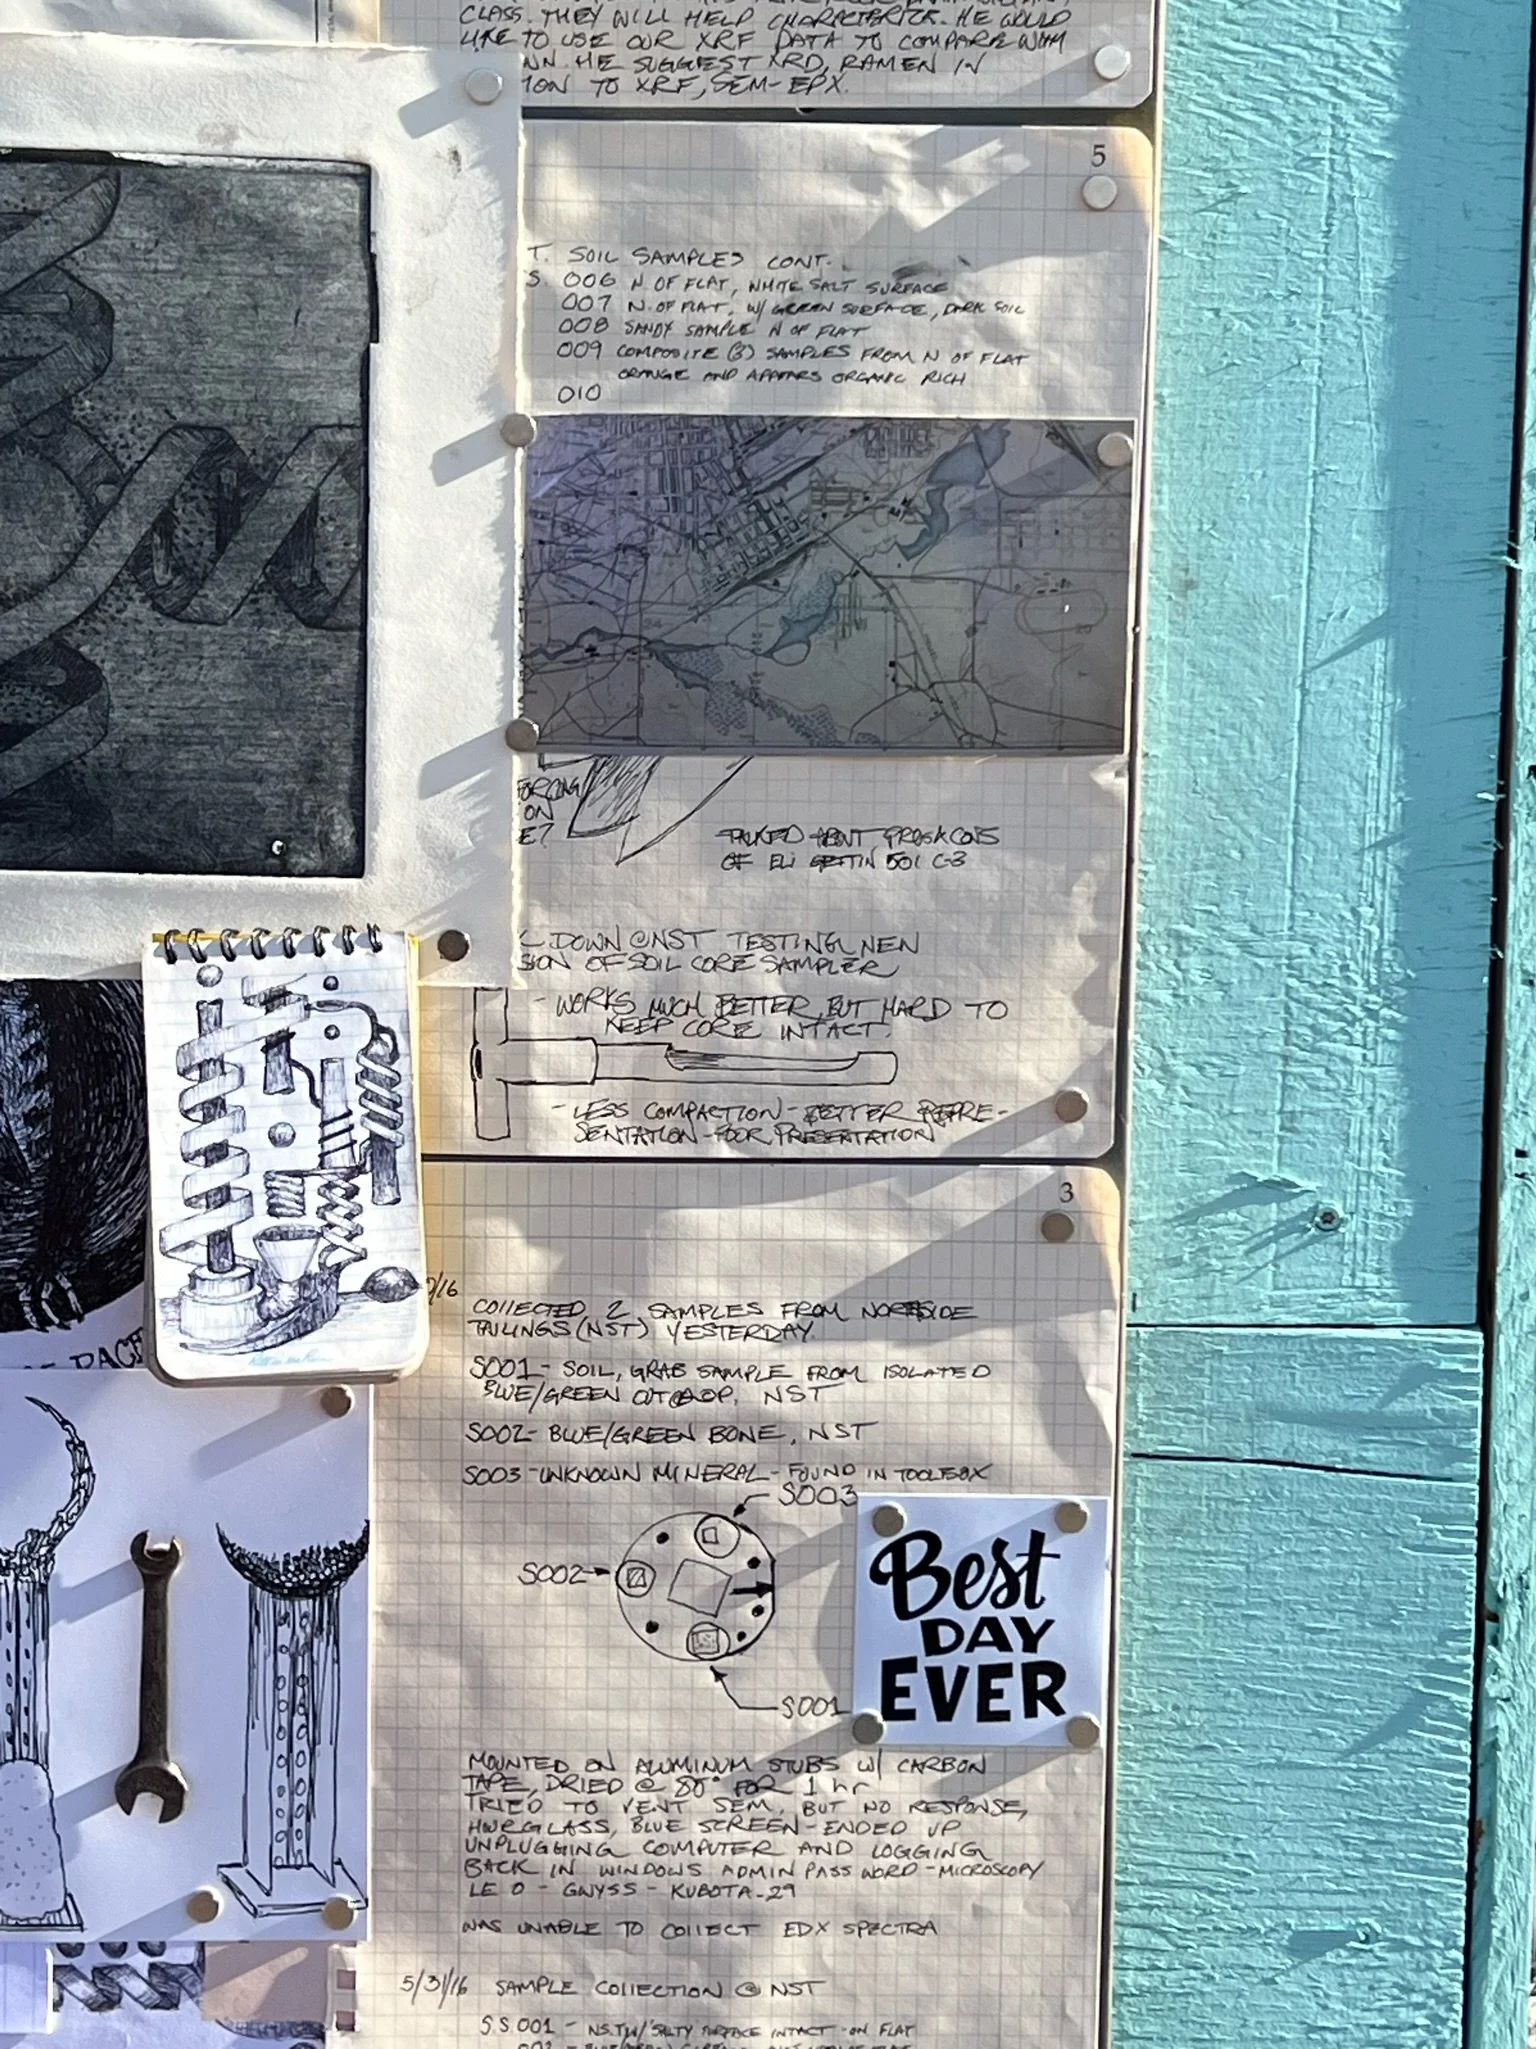 CLASS. THEY WILL HELP CHARACTERIZE. HE WOULD
LIKE TO USE OUR XRF DATA TO COMPARE WITH
NN. HE SUGGEST XRD, RAMEN IN
ION TO XRF, SEM-EPX.
5
T. SOIL SAMPLES CONT.
S. 006 N OF FLAT, WHITE SALT SURFACE
007 N. OF FLAT, W/ GREEN SURFACE, DARK SOIL
008 SANDY SAMPLE N OF FLAT
009 COMPOSITE (3) SAMPLES FROM N OF FLAT
ORANGE AND APPEARS ORGANIC RICH
010
FORCING
ON
E?
TALKED ABOUT PROS/CONS
OF ELI GETTIN 501 C-3
DOWN @ NST TESTING NEW
SION OF SOIL CORE SAMPLER
- WORKS MUCH BETTER, BUT HARD TO
KEEP CORE INTACT.
- LESS COMPACTION - BETTER REPRE-
SENTATION - POOR PRESENTATION
3
/16
COLLECTED 2 SAMPLES FROM NORTHSIDE
TAILINGS (NST) YESTERDAY.
S001 - SOIL, GRAB SAMPLE FROM ISOLATED
BLUE/GREEN OUTCROP, NST
S002 - BLUE/GREEN BONE, NST
S003 - UNKNOWN MINERAL - FOUND IN TOOLBOX
S003
S002
S001
Best
DAY
EVER
MOUNTED ON ALUMINUM STUBS W/ CARBON
TAPE, DRIED @ 80° FOR 1 hr
TRIED TO VENT SEM, BUT NO RESPONSE,
HOURGLASS, BLUE SCREEN - ENDED UP
UNPLUGGING COMPUTER AND LOGGING
BACK IN WINDOWS ADMIN PASSWORD - MICROSCOPY
LEO - GWYSS - KUBOTA-29
WAS UNABLE TO COLLECT EDX SPECTRA
5/31/16 SAMPLE COLLECTION @ NST
S.S. 001 - SALTY SURFACE INTACT - ON FLAT